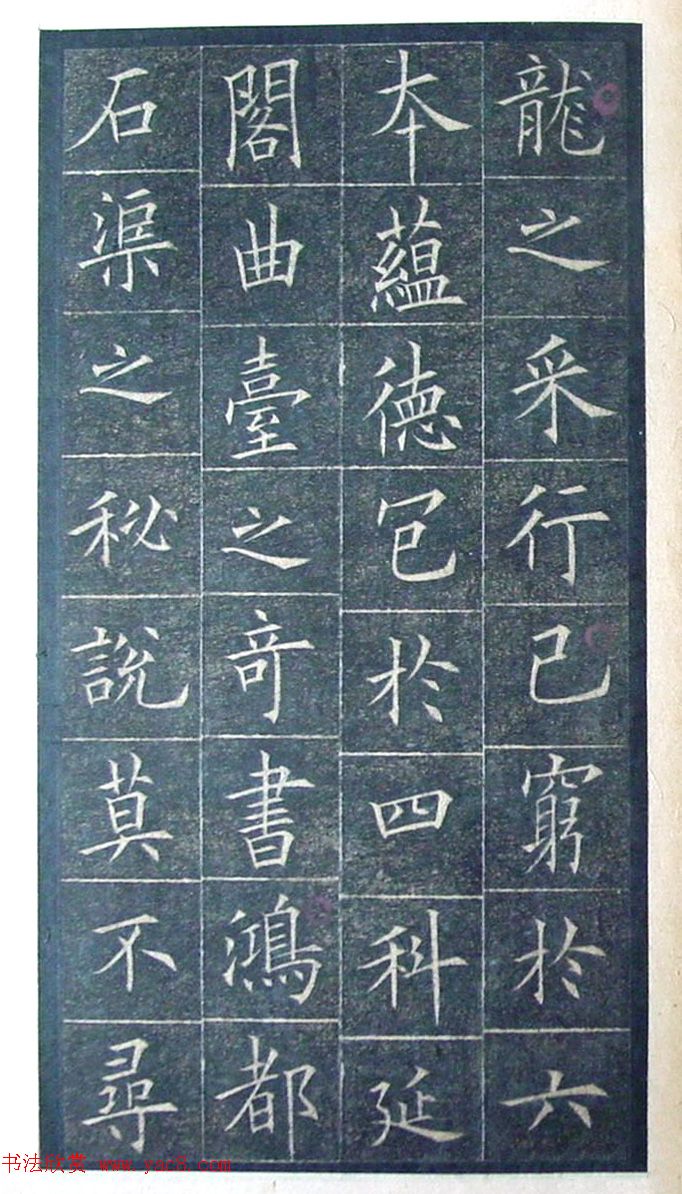 龍之采行己窮於六
本蘊德包於四科延
閣曲臺之奇書鴻都
石渠之秘說莫不尋
书法欣赏 www.yac8.com